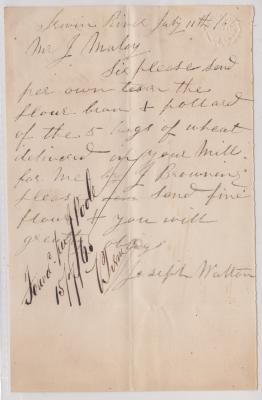 River July 11th
Mr J Maloy
Sir please send
per own team the
flour bran & pollard
of the 5 bags of wheat
delivered on your Mill
for me by J Browning
please send fine
flour & you will
greatly oblige
Joseph Watton
15/7/65